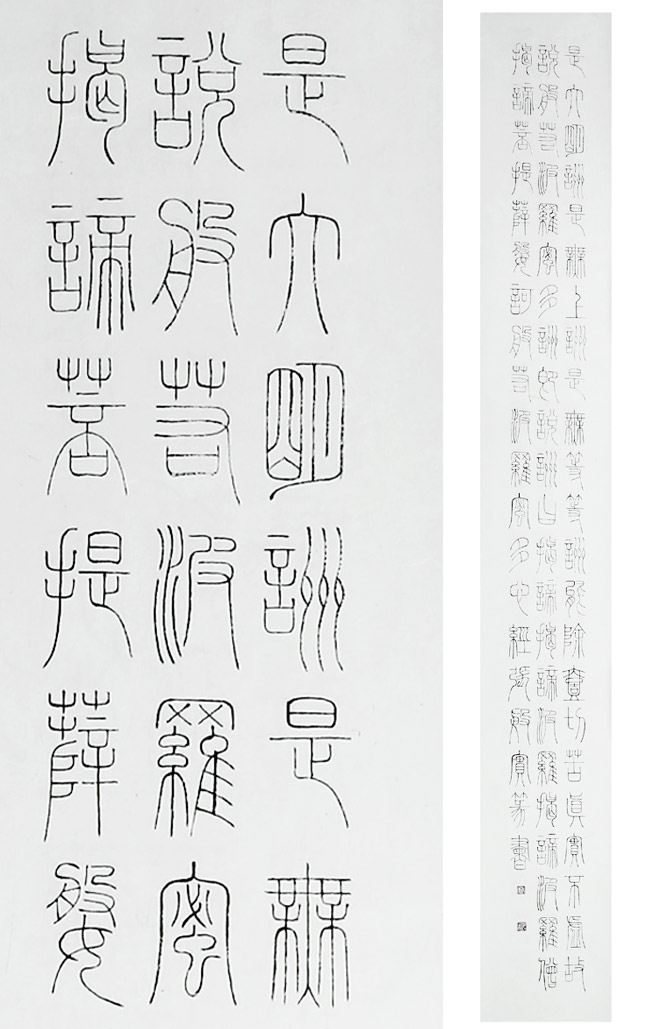 是大明詶是無
說般若波羅蜜
揭諦菩提薛媻
是大明詶是無上詶是無等等詶能除壹切苦真實不虛故
說般若波羅蜜多詶即說詶曰揭諦揭諦波羅揭諦波羅僧
揭諦菩提薛媻訶般若波羅蜜多心經 實篆書